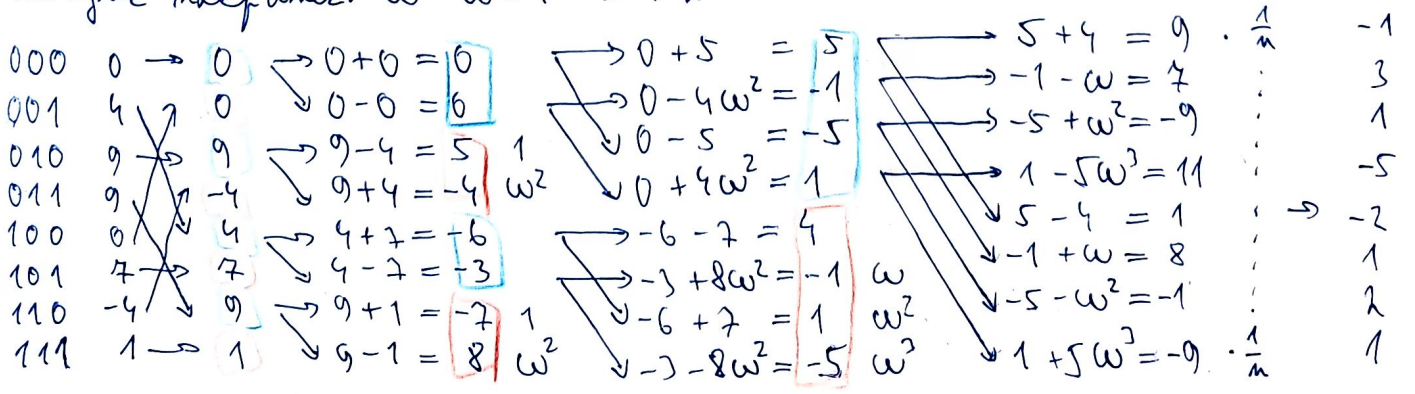 000 0 → 0 → 0+0 = 0 → 0+5 = 5 → 5+4 = 9 · 1/n -1
001 4 0 ↘ 0-0 = 0 → 0-4ω² = -1 → -1-ω = 7 3
010 9 → 9 → 9-4 = 5 1 ↘ 0-5 = -5 → -5+ω² = -9 1
011 9 -4 ↘ 9+4 = -4 ω² ↘ 0+4ω² = 1 → 1-5ω³ = 11 -5
100 0 4 → 4+7 = -6 → -6-7 = 4 ↘ 5-4 = 1 → -2
101 7 → 7 ↘ 4-7 = -3 → -3+8ω² = -1 ω ↘ -1+ω = 8 1
110 -4 9 → 9+1 = -7 1 ↘ -6+7 = 1 ω² ↘ -5-ω² = -1 2
111 1 → 1 ↘ 9-1 = 8 ω² ↘ -3-8ω² = -5 ω³ ↘ 1+5ω³ = -9 · 1/n 1